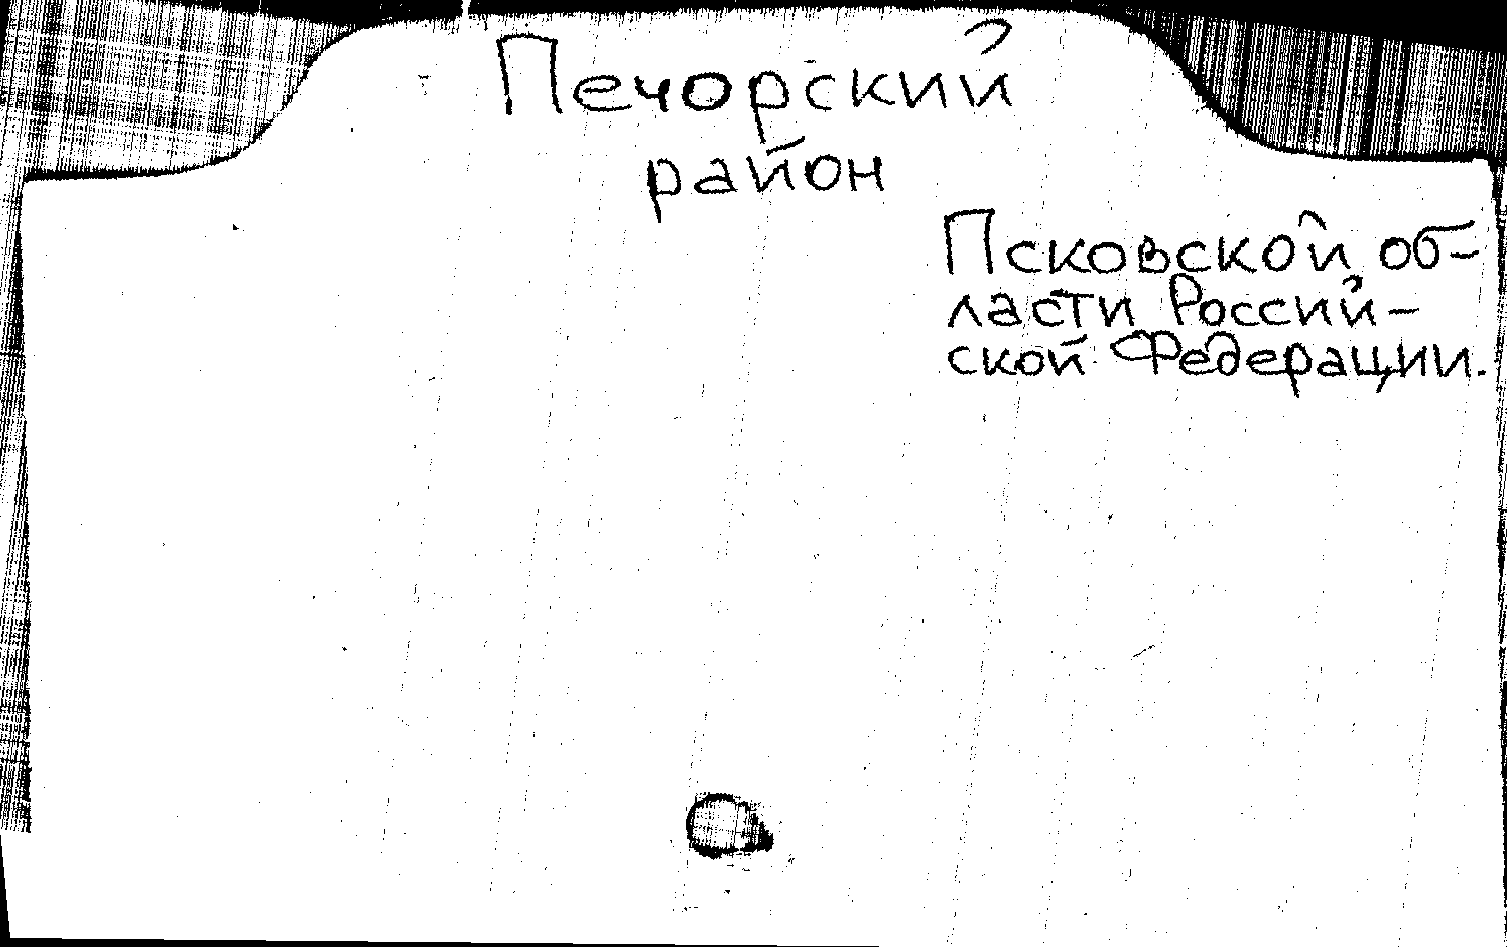 Печорский
район
Псковской об-
ласти Россий-
ской Федерации.